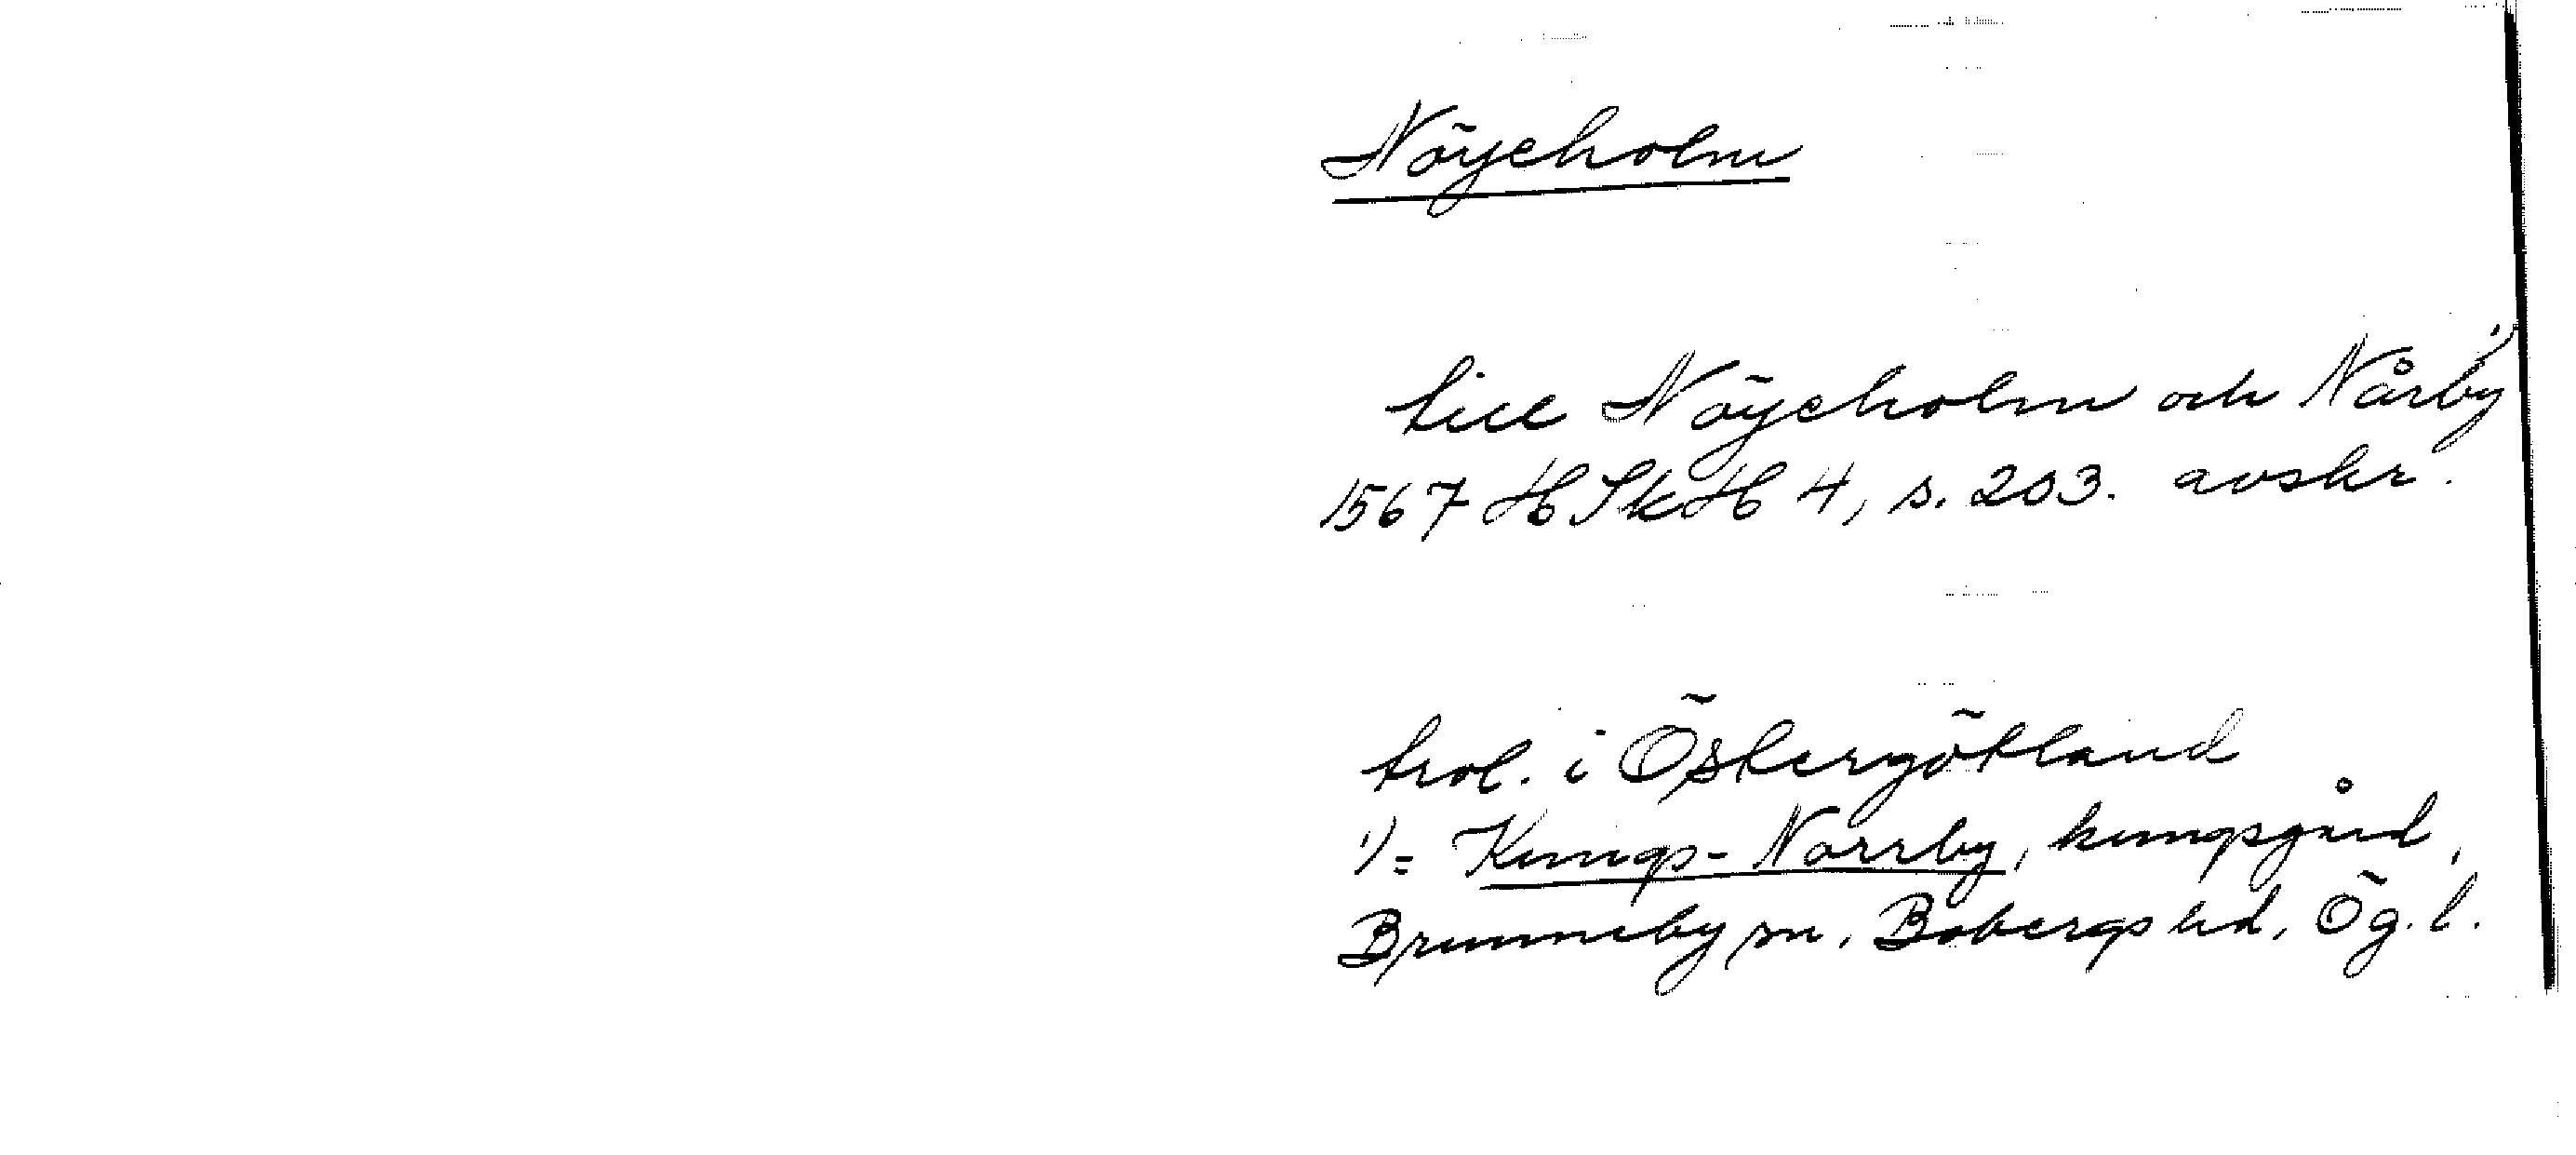 Nöyeholm
till Nöyeholm och Nårby 1)
1567 HSkH 4, s. 203. avskr.
trol. i Östergötland
1) = Kungs-Norrby, kungsgård,
Brunneby sn, Bobergs hd, Ög. l.